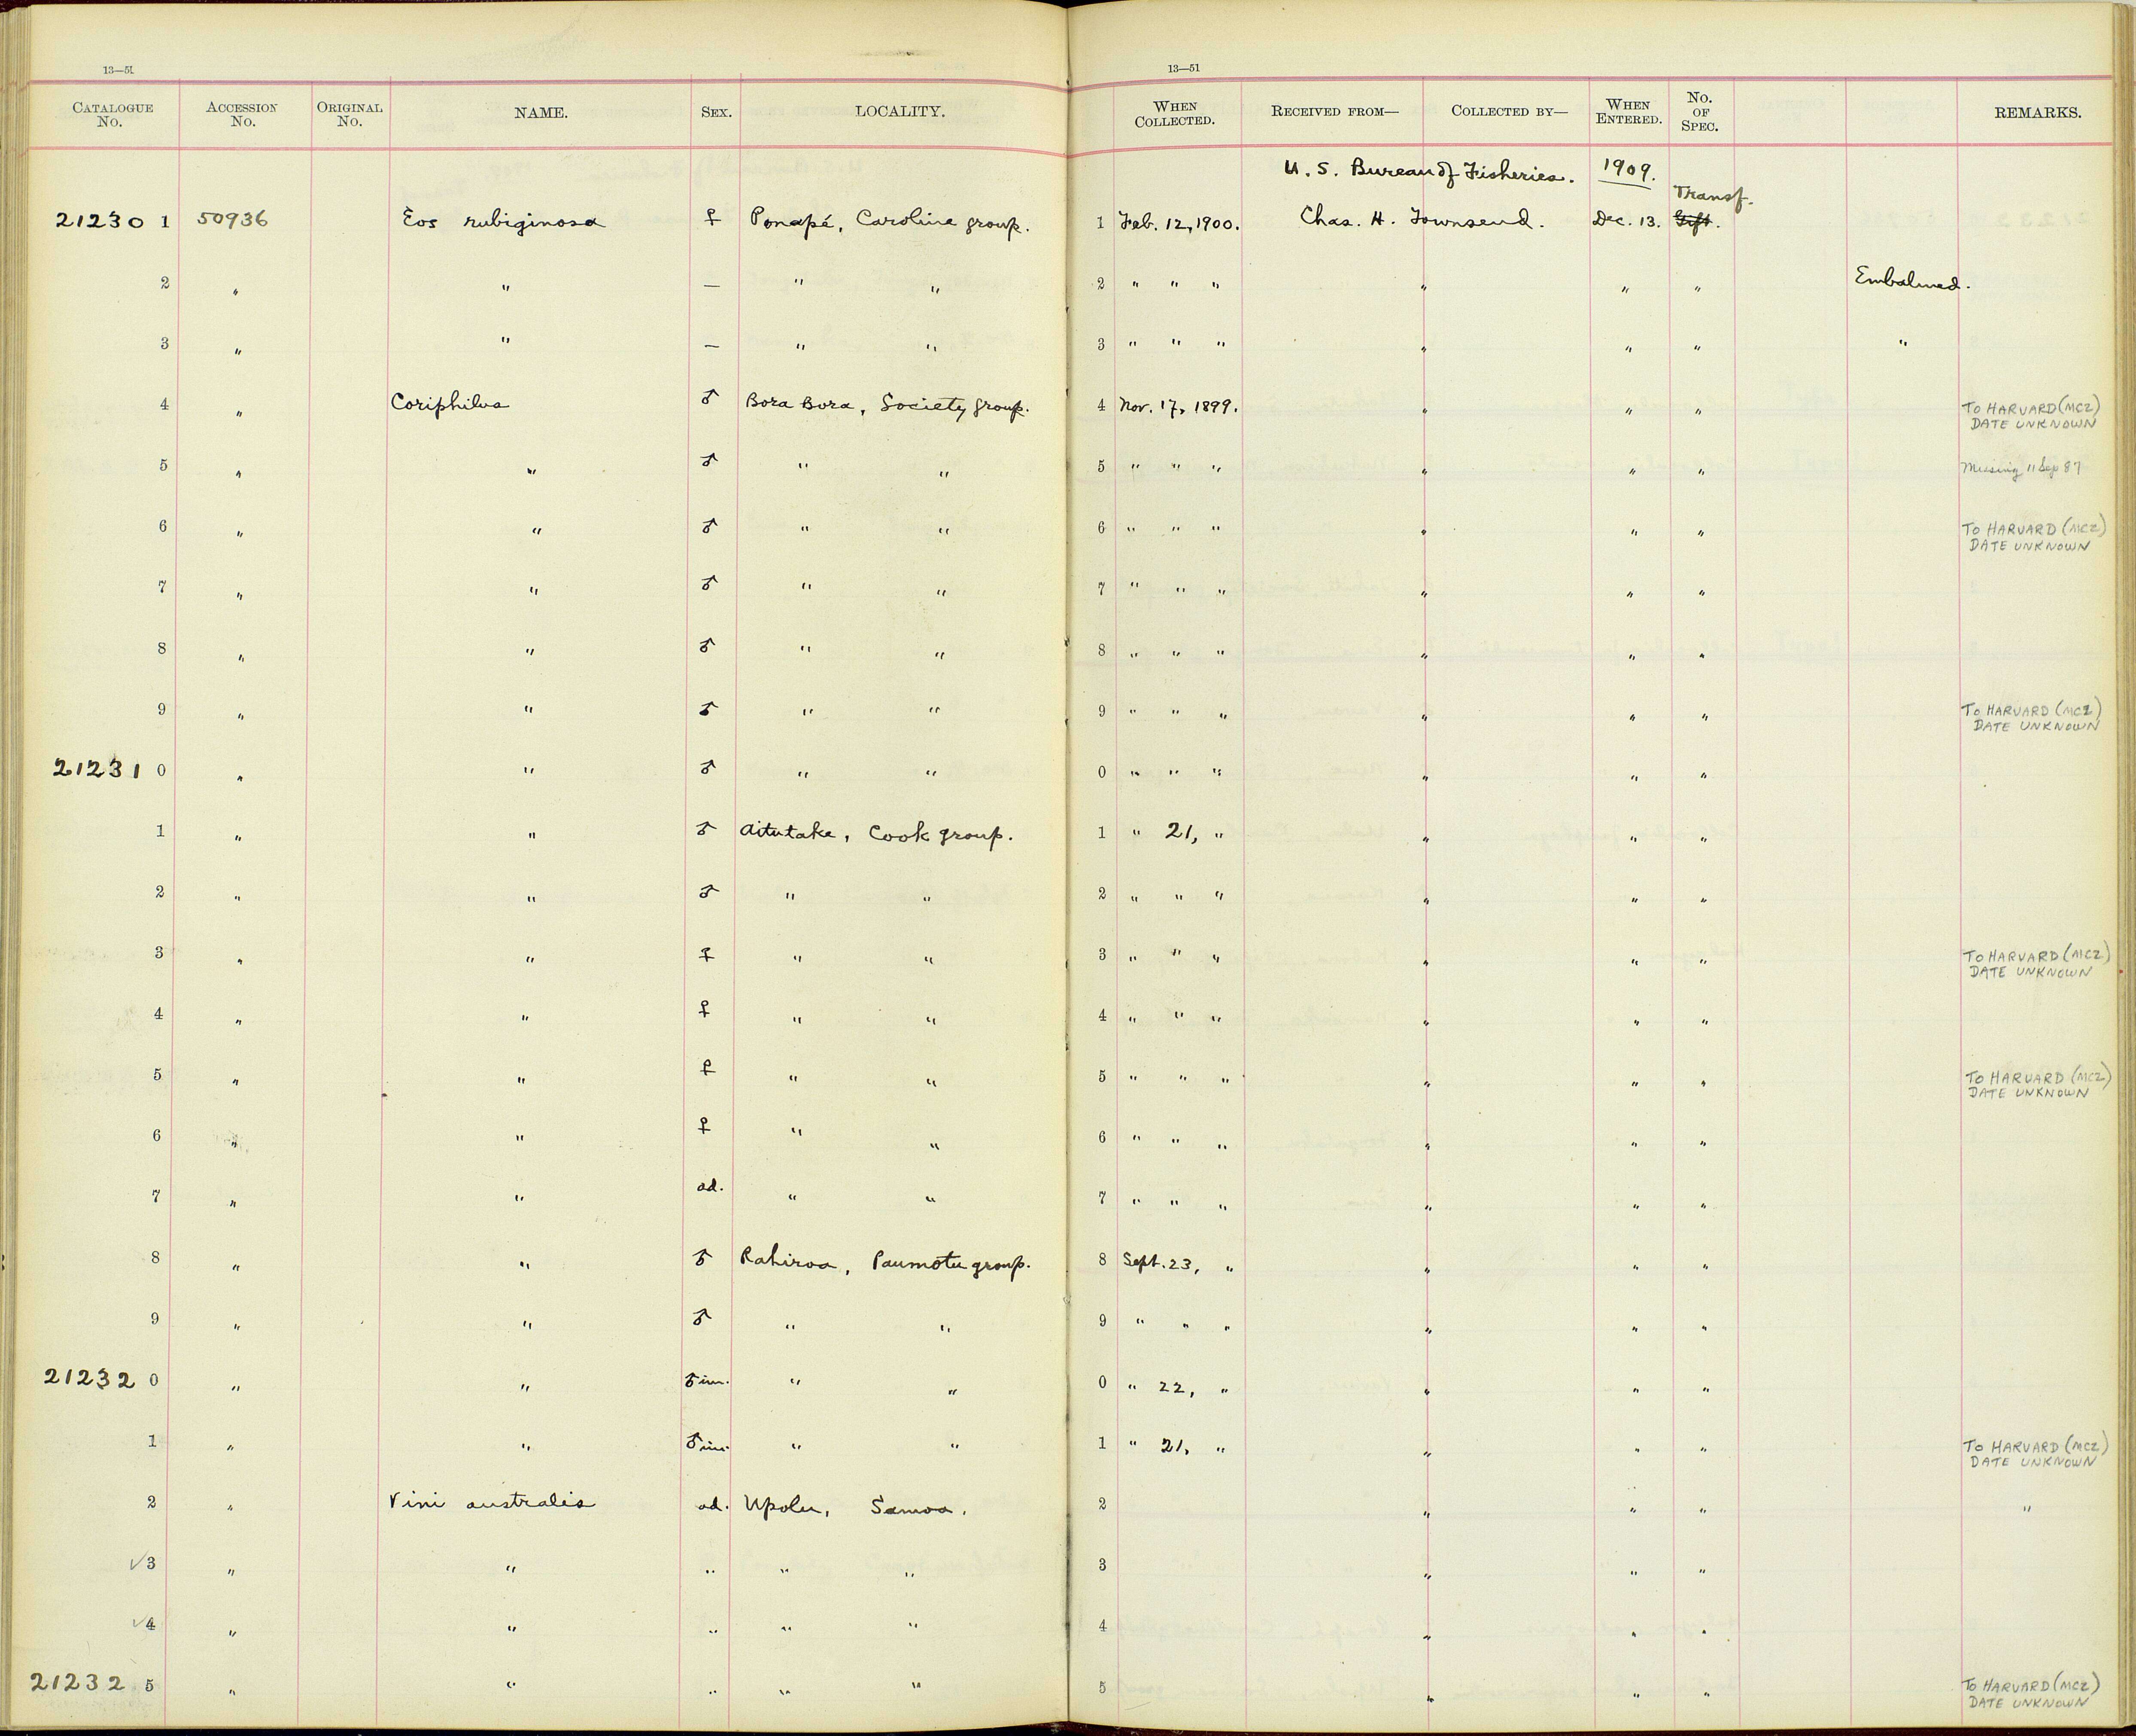 13—51
13—51
CATALOGUE No. ACCESSION No. ORIGINAL No. NAME. SEX. LOCALITY. WHEN COLLECTED. RECEIVED FROM— COLLECTED BY— WHEN ENTERED. No. OF SPEC. REMARKS.
U. S. Bureau of Fisheries. 1909.
Transf.
21230 1 50936 Eos rubiginosa ♀ Ponapé, Caroline group. 1 Feb. 12, 1900. Chas. H. Townsend. Dec. 13. Gift.
2 " " — " " 2 " " " " " " Embalmed.
3 " " — " " 3 " " " " " " "
4 " Coriphilus ♂ Bora Bora, Society group. 4 Nov. 17, 1899. " " " TO HARVARD (MCZ)
DATE UNKNOWN
5 " " ♂ " " 5 " " " " " " Missing 11 Sep 87
6 " " ♂ " " 6 " " " " " " TO HARVARD (MCZ)
DATE UNKNOWN
7 " " ♂ " " 7 " " " " " "
8 " " ♂ " " 8 " " " " " "
9 " " ♂ " " 9 " " " " " " TO HARVARD (MCZ)
DATE UNKNOWN
21231 0 " " ♂ " " 0 " " " " " "
1 " " ♂ Aitutake, Cook group. 1 " 21, " " " "
2 " " ♂ " " 2 " " " " " "
3 " " ♀ " " 3 " " " " " " TO HARVARD (MCZ)
DATE UNKNOWN
4 " " ♀ " " 4 " " " " " "
5 " " ♀ " " 5 " " " " " " TO HARVARD (MCZ)
DATE UNKNOWN
6 " " ♀ " " 6 " " " " " "
7 " " ad. " " 7 " " " " " "
8 " " ♂ Rahiroa, Paumotu group. 8 Sept. 23, " " " "
9 " " ♂ " " 9 " " " " " "
21232 0 " " ♂ im. " " 0 " 22, " " " "
1 " " ♂ im. " " 1 " 21, " " " " TO HARVARD (MCZ)
DATE UNKNOWN
2 " Vini australis ad. Upolu, Samoa. 2 " " " "
✓3 " " " " " 3 " " "
✓4 " " " " " 4 " " "
21232 5 " " " " " 5 " " " TO HARVARD (MCZ)
DATE UNKNOWN